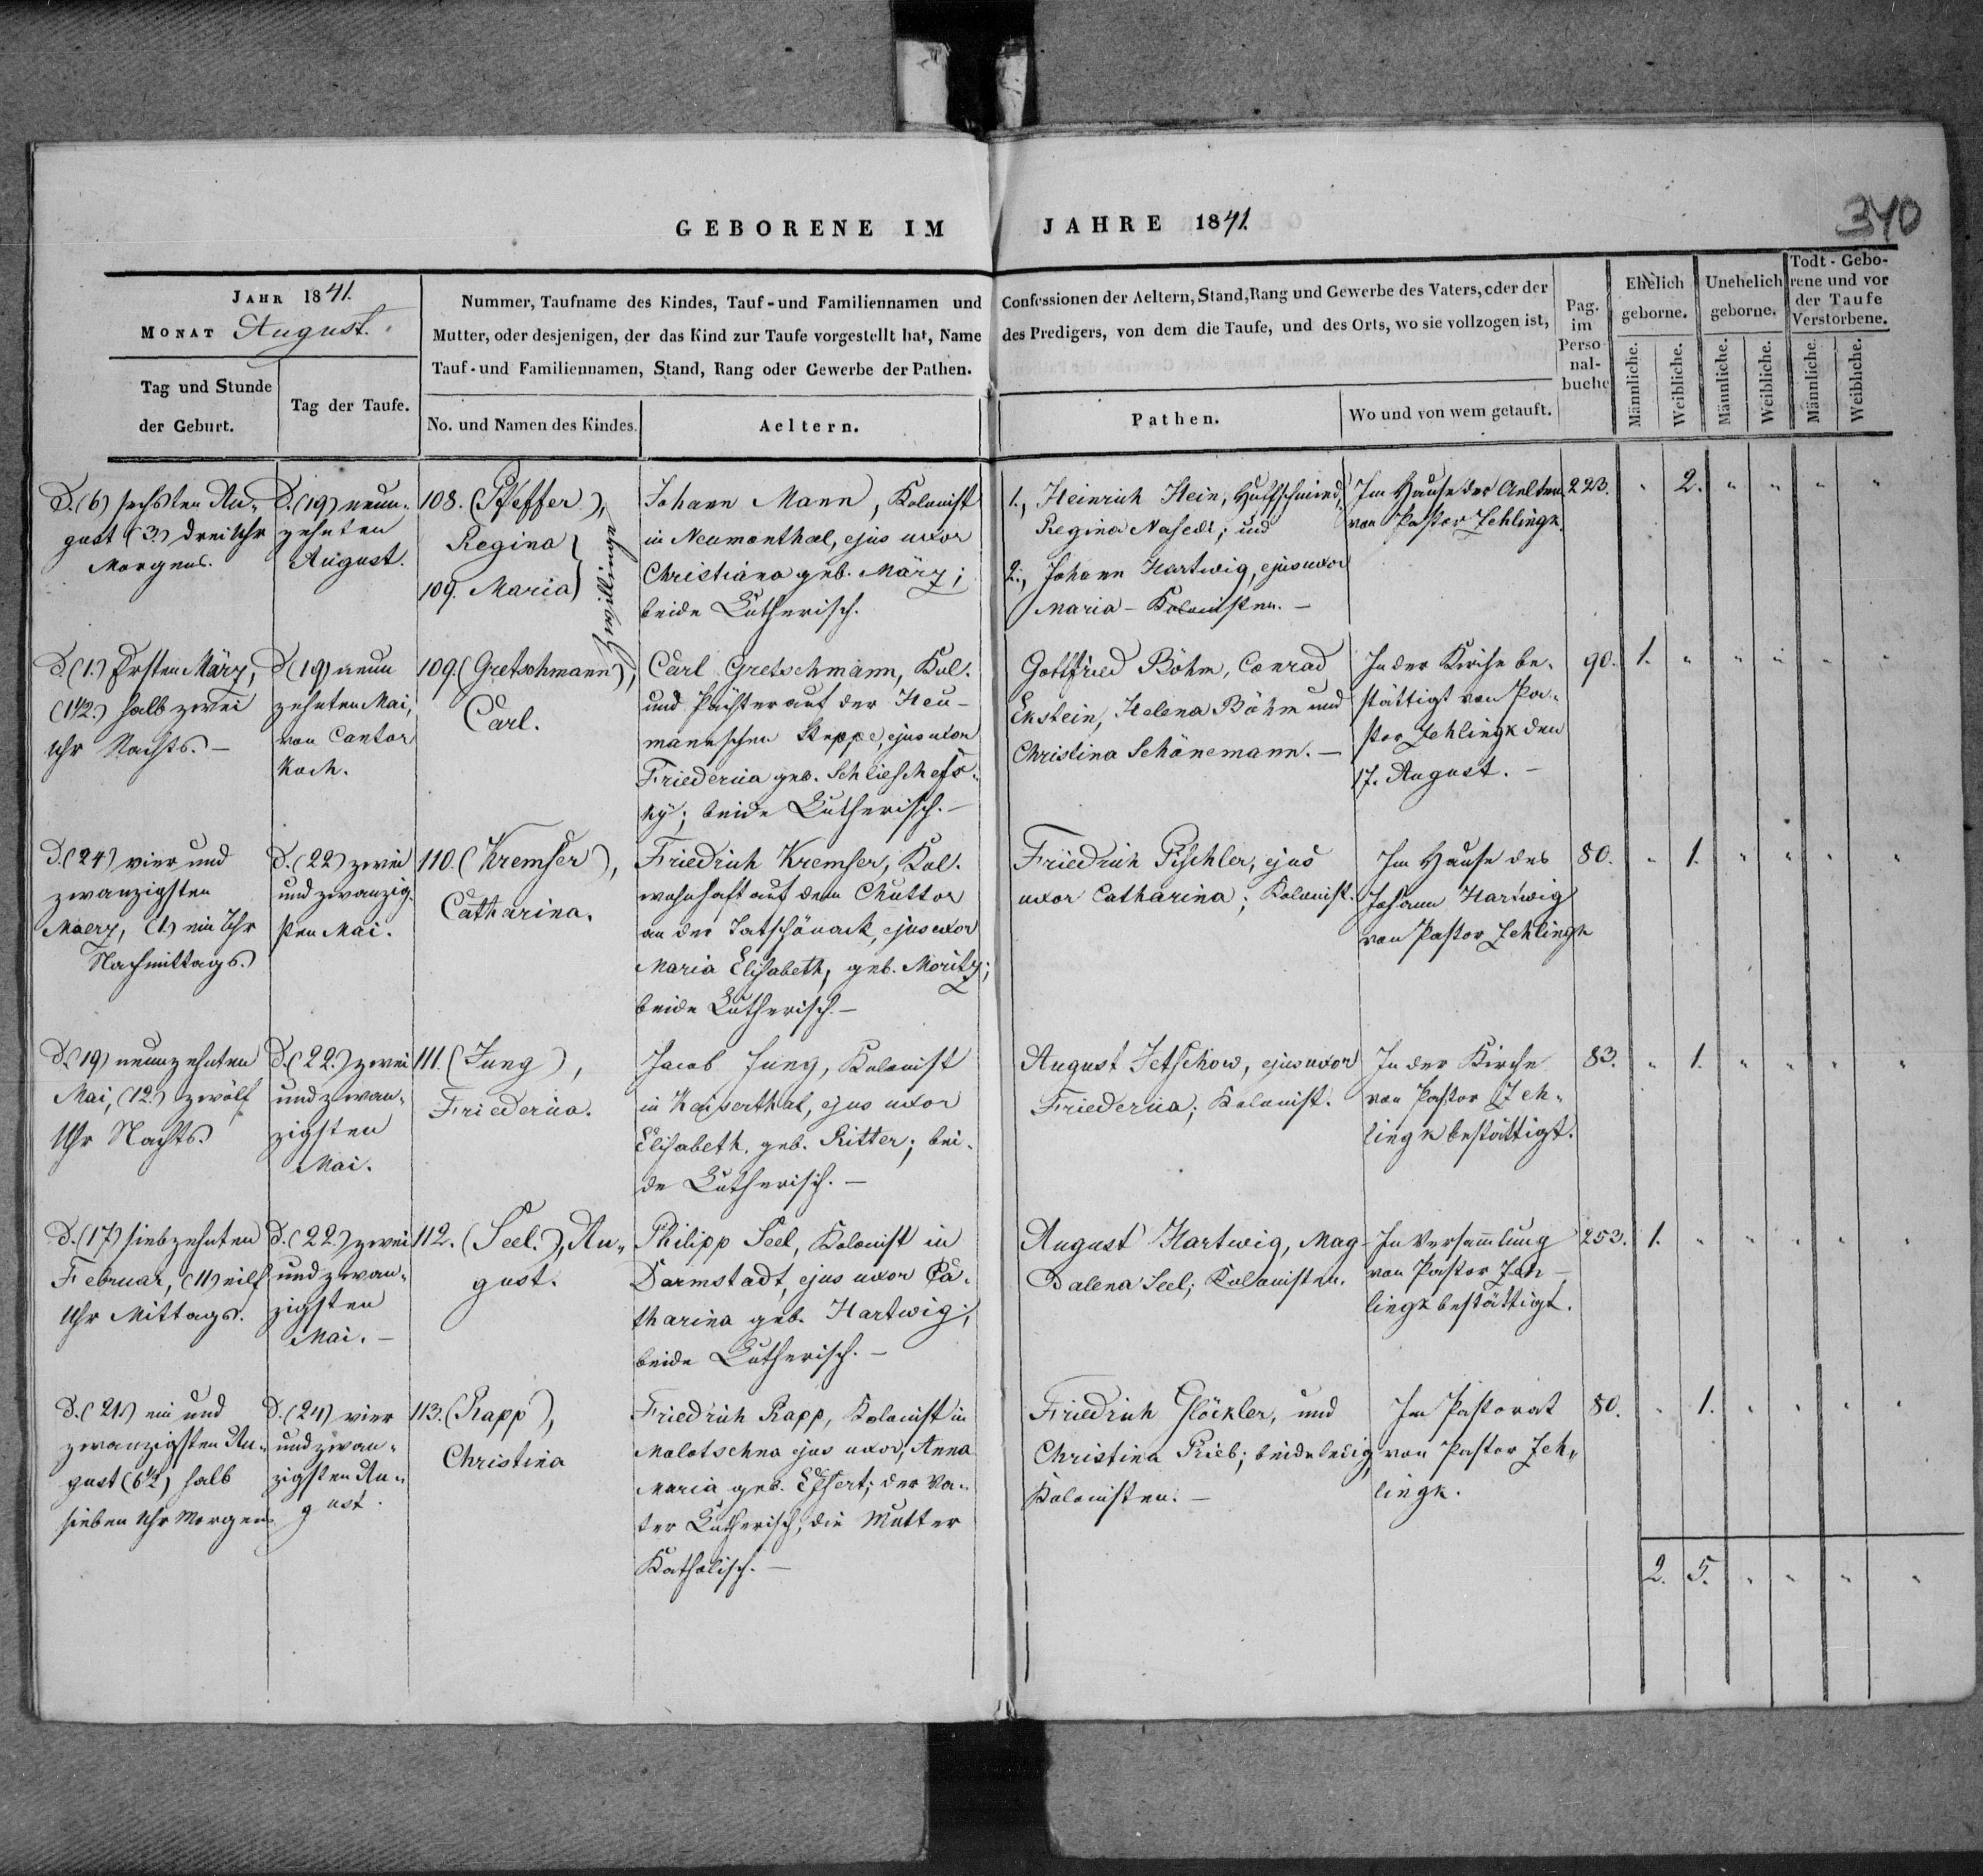 GEBORENE IM JAHRE 1841.
340
JAHR 1841.
MONAT August.
Tag und Stunde
der Geburt.
Tag der Taufe.
Nummer, Taufname des Kindes, Tauf-und Familiennamen und Confessionen der Aeltern, Stand, Rang und Gewerbe des Vaters, oder der
Mutter, oder desjenigen, der das Kind zur Taufe vorgestellt hat, Name des Predigers, von dem die Taufe, und des Orts, wo sie vollzogen ist,
Tauf-und Familiennamen, Stand, Rang oder Gewerbe der Pathen.
No. und Namen des Kindes.
Aeltern.
Pathen.
Wo und von wem getauft.
Pag.
im
Perso
nal-
buche
Ehelich
geborne.
Unehelich
geborne.
Todt-Gebo-
rene und vor
der Taufe
Verstorbene.
Männliche.
Weibliche.
Männliche.
Weibliche.
Männliche.
Weibliche.
D. (6) sechsten Au-
gust (3.) drei Uhr
Morgens.
D. (19) neun-
zehnten
August.
108. (Pfeffer),
Regina
109. Maria
Zwillinge
Johann Mann, Kolonist
in Neumonthal, ejus uxor
Christiana geb. März;
beide Lutherisch.
1., Heinrich Hein, Hufschmied,
Regina; und
2., Johann Hartwig, ejus uxor
Maria - Kolonisten. -
Im Hause der Aeltern
von Pastor Zehlingk.
223. " 2. " " " "
D. (1.) Ersten März,
(1 1/2.) halb zwei
Uhr Nachts. -
D. (19) neun
zehnten Mai,
von Cantor
Koch.
109. (Gretschmann),
Carl.
Carl Gretschmann, Kol.
und Pächter auf der Heu-
mannschen Steppe, ejus uxor
Friedericia geb. Schlieschefs-
ky; beide Lutherisch. -
Gottfried Böhm, Conrad
Ekstein, Helena Böhm und
Christina Schönemann. -
In der Kirche be-
stättigt von Pa-
stor Zehlingk den
17. August. -
90. 1. " " " " "
D. (24) vier und
zwanzigsten
Maerz, (1.) ein Uhr
Nachmittags.
D. (22) zwei
und zwanzig-
sten Mai.
110. (Kremser),
Catharina.
Friedrich Kremser, Kol.
wohnhaft auf dem Chuttor
an der, ejus uxor
Maria Elisabeth, geb. Moritz;
beide Lutherisch. -
Friedrich Pischler, ejus
uxor Catharina; Kolonist.
Im Hause des
Johann Hartwig
von Pastor Zehlingk
80. " 1. " " " "
D. (19) neunzehnten
Mai, (12.) zwölf
Uhr Nachts.
D. (22.) zwei
und zwan-
zigsten
Mai.
111. (Jung),
Friedericia.
Jacob Jung, Kolonist
in Kaiserthal, ejus uxor
Elisabeth, geb. Ritter; bei-
de Lutherisch. -
August Jetschow, ejus uxor
Friedericia; Kolonist.
In der Kirche
von Pastor Zeh-
lingk bestättigt.
83. " 1. " " " "
D. (17) siebzehnten
Februar, (11) eilf
Uhr Mittags.
D. (22.) zwei
und zwan-
zigsten
Mai. -
112. (Seel.), Au-
gust.
Philipp Seel, Kolonist in
Darmstadt, ejus uxor Ca-
tharina geb. Hartwig;
beide Lutherisch. -
August Hartwig, Mag-
dalena Seel; Kolonisten.
In Versamlung
von Pastor Zeh-
lingk bestättigt.
253. 1. " " " " "
D. (21.) ein und
zwanzigsten Au-
gust (6 1/2) halb
sieben Uhr Morgens
D. (24) vier
und zwan-
zigsten Au-
gust.
113. (Rapp),
Christina
Friedrich Rapp, Kolonist in
Molotschna ejus uxor, Anna
Maria geb. Effert; der Va-
ter Lutherisch, die Mutter
Katholisch. -
Friedrich Glöckler, und
Christina Prieb; beide ledig,
Kolonisten. -
Im Pastorat
von Pastor Zeh-
lingk.
80. " 1. " " " "
2. 5. " " " "